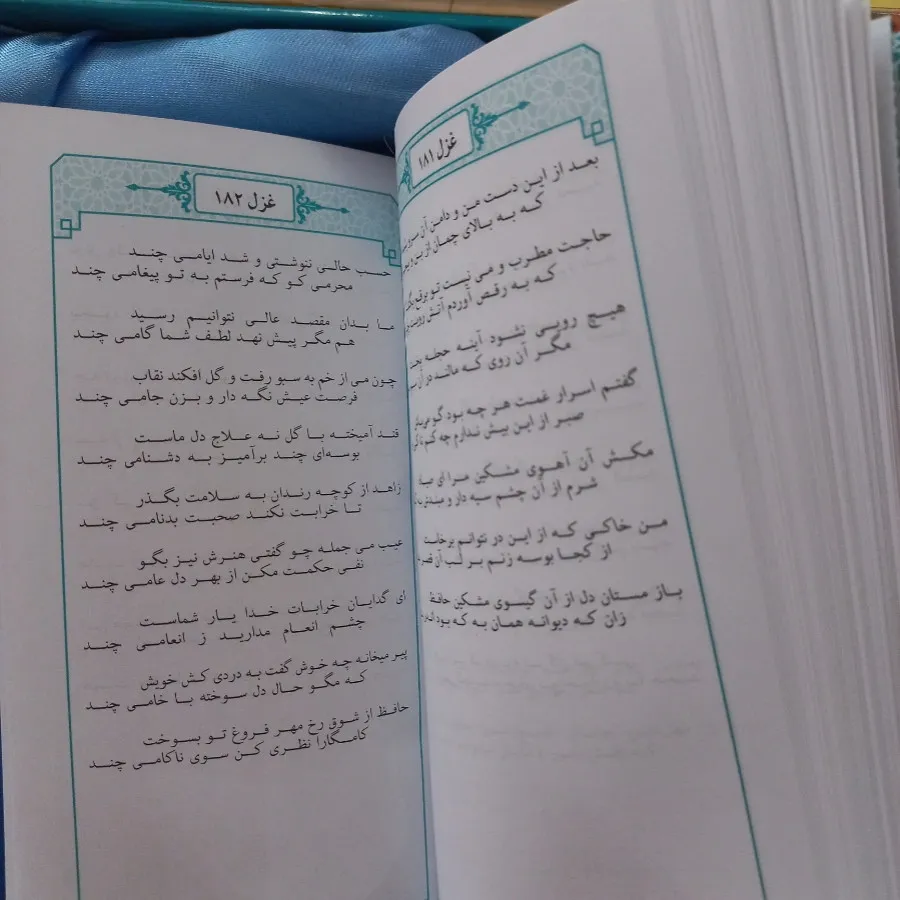 غزل ۱۸۱
بعد از این دست من و دامن آن سرو
که به بالای چمان از بن و
حاجت مطرب و می نیست تو برقع
که به رقص آوردم آتش رویت
هیچ رویی نشود آینه حجله
مگر آن روی که مالند در آن
گفتم اسرار غمت هر چه بود گو
صبر از این بیش ندارم چه کنم
مکش آن آهوی مشکین مرا ای
شرم از آن چشم سیه دار و
من خاکی که از این در نتوانم برخاست
از کجا بوسه زنم بر لب آن
باز مستان دل از آن گیسوی مشکین حافظ
زان که دیوانه همان به که بود
غزل ۱۸۲
حسب حالی ننوشتی و شد ایامی چند
محرمی کو که فرستم به تو پیغامی چند
ما بدان مقصد عالی نتوانیم رسید
هم مگر پیش نهد لطف شما گامی چند
چون می از خم به سبو رفت و گل افکند نقاب
فرصت عیش نگه دار و بزن جامی چند
قند آمیخته با گل نه علاج دل ماست
بوسه‌ای چند برآمیز به دشنامی چند
زاهد از کوچه رندان به سلامت بگذر
تا خرابت نکند صحبت بدنامی چند
عیب می جمله چو گفتی هنرش نیز بگو
نفی حکمت مکن از بهر دل عامی چند
ای گدایان خرابات خدا یار شماست
چشم انعام مدارید ز انعامی چند
پیر میخانه چه خوش گفت به دردی کش خویش
که مگو حال دل سوخته با خامی چند
حافظ از شوق رخ مهر فروغ تو بسوخت
کامگارا نظری کن سوی ناکامی چند